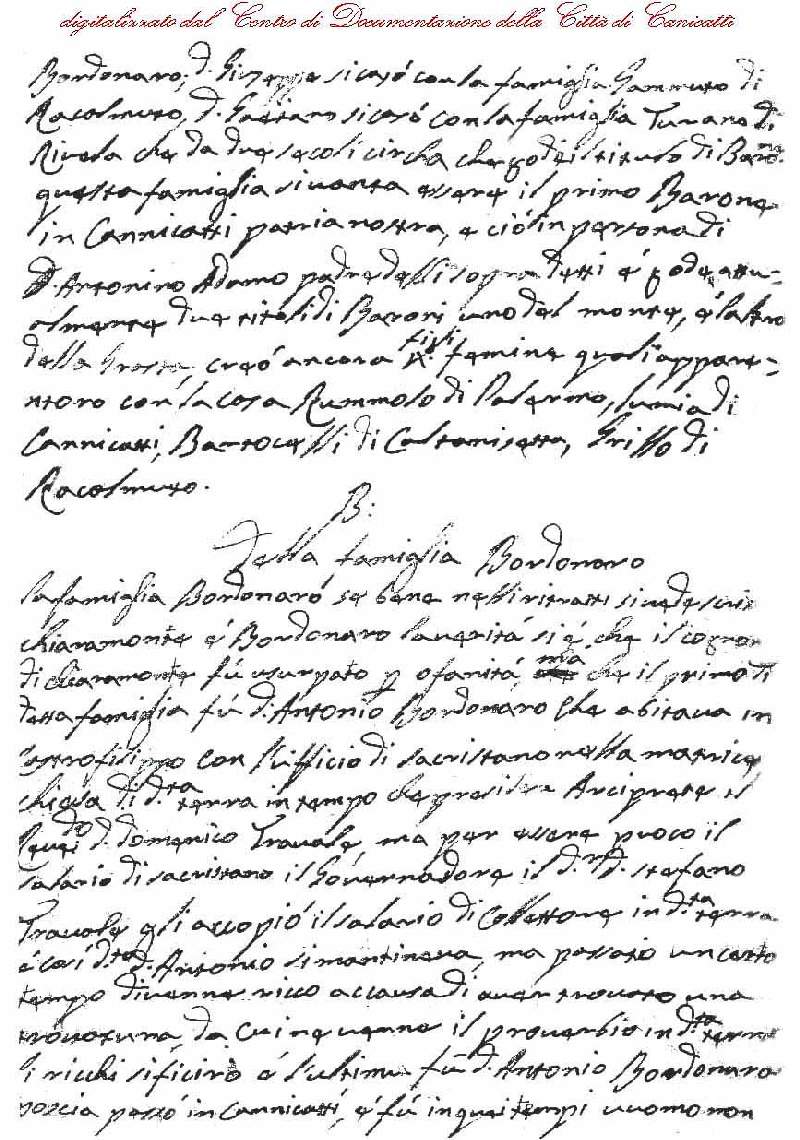 digitalizzato dal Centro di Documentazione della Città di Canicattì
Bordonaro; d. Giuseppe si casó con la famiglia Gammuto di
Racalmuto, d. Gaetano si casó con la famiglia Turano di
Rivela che da due secoli circha che gode il titulo di Barone
questa famiglia si vanta essere il primo Barone
in Cannicatti patria nostra, e ció in persona di
D. Antonino Adamo padre delli sopra detti é gode attu-
almente due titoli di Baroni uno del monte, é laltro
della Grotta, creó ancora figli femine quali appare-
ntoro con la casa Rummolo di Palermo, lumia di
Cannicatti, Bartocelli di Caltanisetta, Grillo di
Racalmuto.
B:
Della famiglia Bordonaro
la famiglia Bordonaró se bene nelli ritratti si vede
chiaramonte é Bordonaro la veritá si é che il cognom
di chiaramonte fú usurpato p ofanitá, mia che il primo di
detta famiglia fú d. Antonio Bordonaro che abitava in
Castrofilippo con l'ufficio di sacristano nella matrice
chiesa di d.ta terra in tempo che presideva Arciprete il
Revdo d. Domenico Travale, ma per essere puoco il
salario di sacristano il Governadore il d.r d. stefano
Travale gli accopió il salario di Collettore in d.ta terra
é cosí d.to d. Antonio si mantineva, ma passato un certo
tempo divenne ricco a causa di aver trovato una
trovatura, da cui ne venne il proverbio in d.ta terra
li ricchi si ficiro é l'ultimu fú d. Antonio Bordonaro
poscia passó in Cannicatti, é fú in quei tempi uuomo non